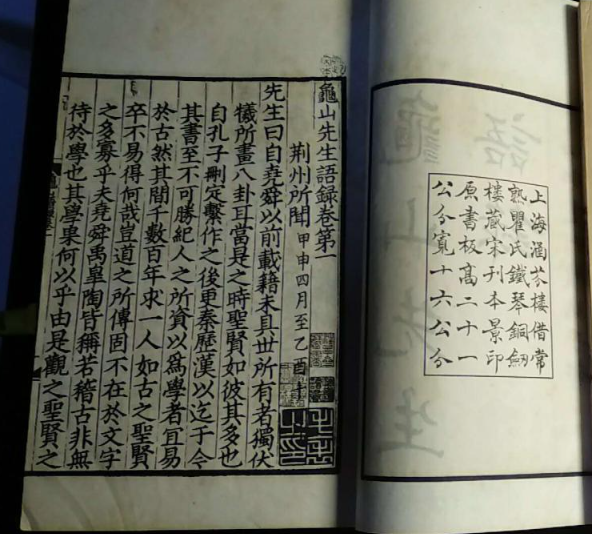 上海涵芬樓借常
熟瞿氏鐵琴銅劍
樓藏宋刊本景印
原書板高二十一
公分寬十六公分
龜山先生語録卷第一
荆州所聞 甲申四月至乙酉十
先生曰自堯舜以前載籍未具丗所有者獨伏
犧所畫八卦耳當是之時聖賢如彼其多也
自孔子刪定繫作之後更秦歷漢以迄于今
其書至不可勝紀人之所資以爲學者宜易
於古然其間千數百年求一人如古之聖賢
卒不易得何哉豈道之所傳固不在於文字
之多寡乎夫堯舜禹臯陶皆稱若稽古非無
待於學也其學果何以乎由是觀之聖賢之